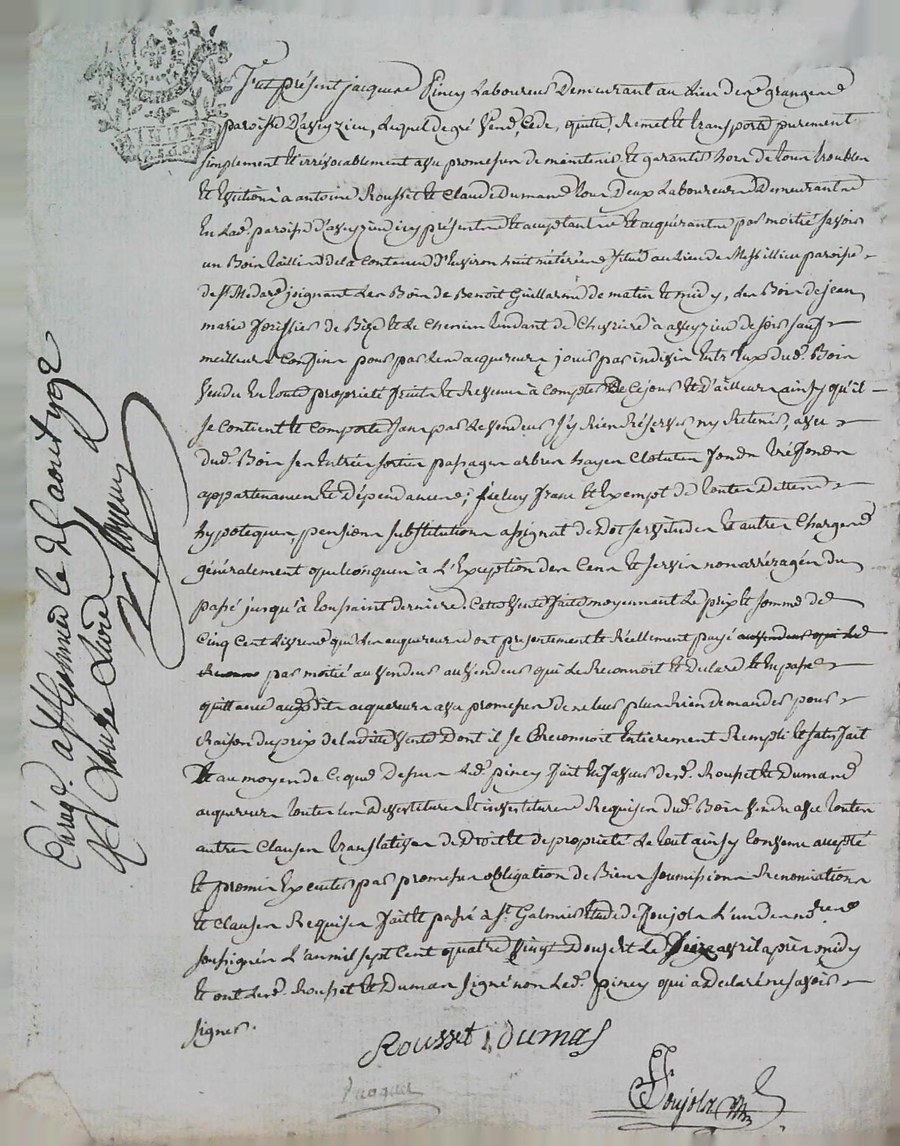 MINUTE
Fut présent jacques Piney Laboureur Demeurant au Lieu des granges
paroisse D'aveyzieu, Lequel de gré Vend, Cede, quitte, Remet et transporte purement
simplement et irrévocablement avec promesses de maintenir et garantir hors de tous troubles
et évictions à antoine Rousset et Claude Dumas tous Deux Laboureurs Demeurants
En Lade. paroisse d'aveyzieu icy présents et acceptants et acquérants par moitié savoir
un Bois taillis de la Contenue d'Environ huit métérées situé au Lieu de Messillieu paroisse
de st. Medard joignant Les Bois de Benoit Guillarme de matin et midy, des Bois de jean
marie forissier de Bize et Le Chemin tendant de Chevrières à aveyzieu de soir sauf
meilleurs Confins pour par Les acquereurs jouir par indivis Entr'Eux dud. Bois
Vendu En toute propriété fruits et Revenus à Compter De Ce jour et d'ailleurs ainsy qu'il
se Contient et Comporte sans par Le Vendeur s'y Rien Réserver ny Retenir, avec
dud. Bois ses Entrées sorties passages arbres hayes Clotures fonds tréffonds
appartenances et dépendances; icelluy franc et Exempt de toutes Dettes
hypoteques, pensions substitutions assignat de Dot servitudes et autres Charges
généralement quelconques à L'Exception des Cens et servis non arréragés du
passé jusqu'à toussaint derniere. Cette Vente faite moyennant Le prix et somme de
Cinq Cent Livres que Les acquereurs ont présentement et Réellement payé au Vendeur qui Le
par moitié au Vendeur au Vendeur qui Le Reconnoit et Declare et En passe
quittance auxdits acquereurs avec promesses de ne Leur plus Rien demander pour
Raison du prix de Ladite Vente Dont il se Reconnoit Entièrement Rempli et satisfait
Et au moyen de Ce que Dessus Led. piney fait En faveur desd. Rousset et Dumas
acquereurs toutes Les Devestitures et investitures Requises dud. Bois Vendu avec toutes
autres Clauses translatives de Droit et de propriété Le tout ainsy Convenu accepté
Et promis Executer par promesses obligation de Biens soumissions Renonciations
et Clauses Requises fait et passé à St. Galmier Etude de Foujols L'un des nres.
soussignés L'an mil sept Cent quatre Vingt Douze et Le seize avril après midy
Et ont Lesd. Rousset et Dumas signé non Led. piney qui a Déclaré ne savoir
signer.
Rousset Dumas
Foujols
Enreg. a St galmier le 2 aout 1792